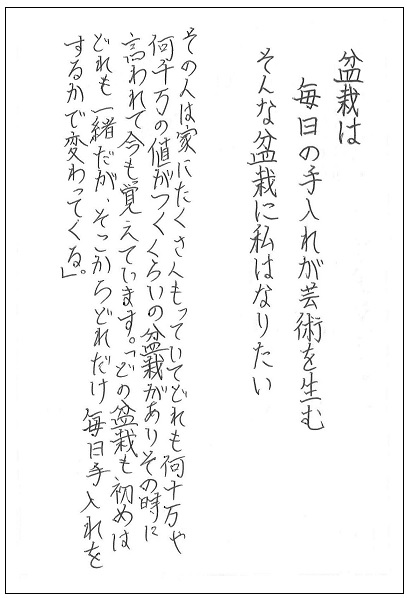 盆栽は
毎日の手入れが芸術を生む
そんな盆栽に私はなりたい
その人は家にたくさんもっていてどれも何十万や
何千万の値がつくくらいの盆栽がありその時に
言われて今も覚えています。「どの盆栽も初めは
どれも一緒だが、そこからどれだけ毎日手入れを
するかで変わってくる。」